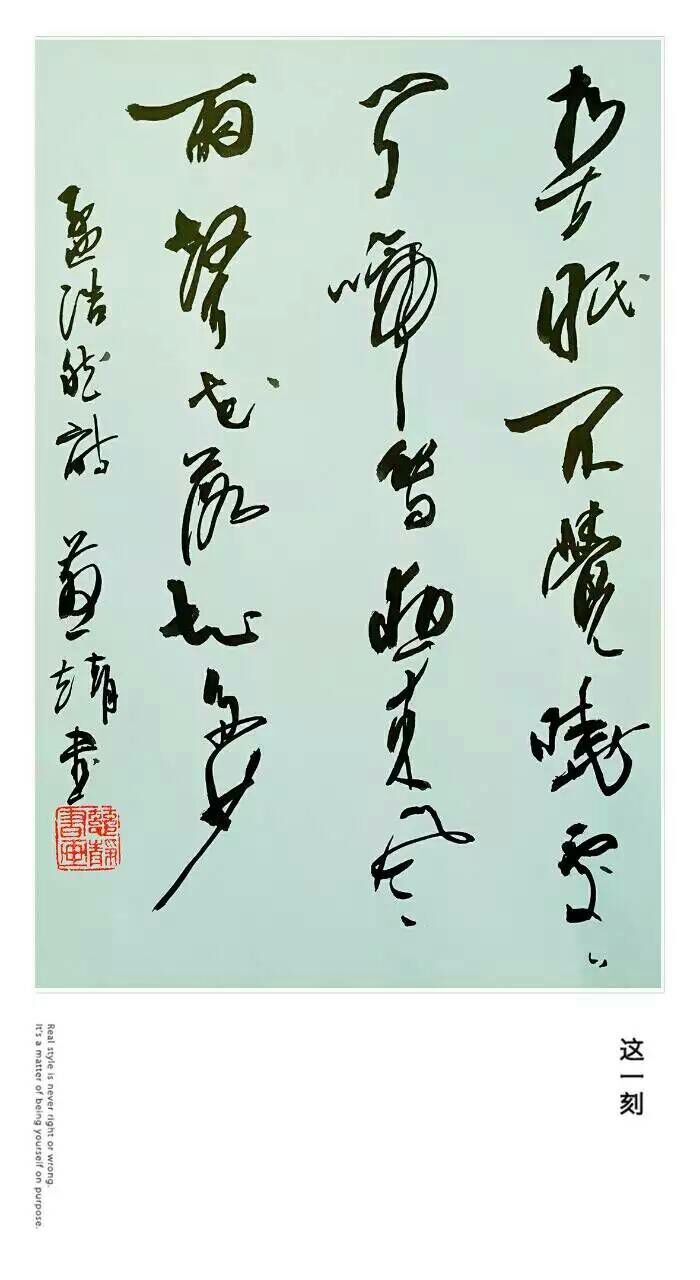 春眠不覺曉處〻
聞啼鳥夜来風
雨聲花落知多少
孟浩然詩 靖書
这一刻
Real style is never right or wrong.
It's a matter of being yourself on purpose.